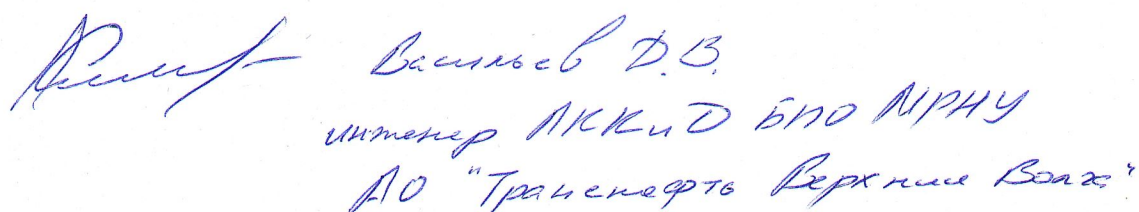 Васильев Д.В.
инженер ЛККиД БПО МРНУ
АО "Транснефть Верхняя Волга"